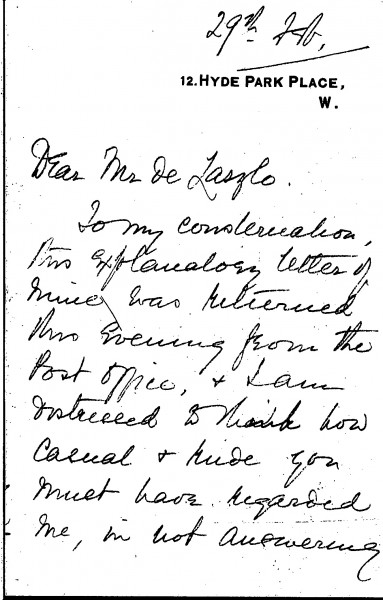 29th Feb.
12. HYDE PARK PLACE,
W.
Dear Mr de Laszlo.
To my consternation,
this explanatory letter of
mine, was returned
this evening from the
Post Office, & I am
distressed to think how
casual & rude you
must have regarded
me, in not answering